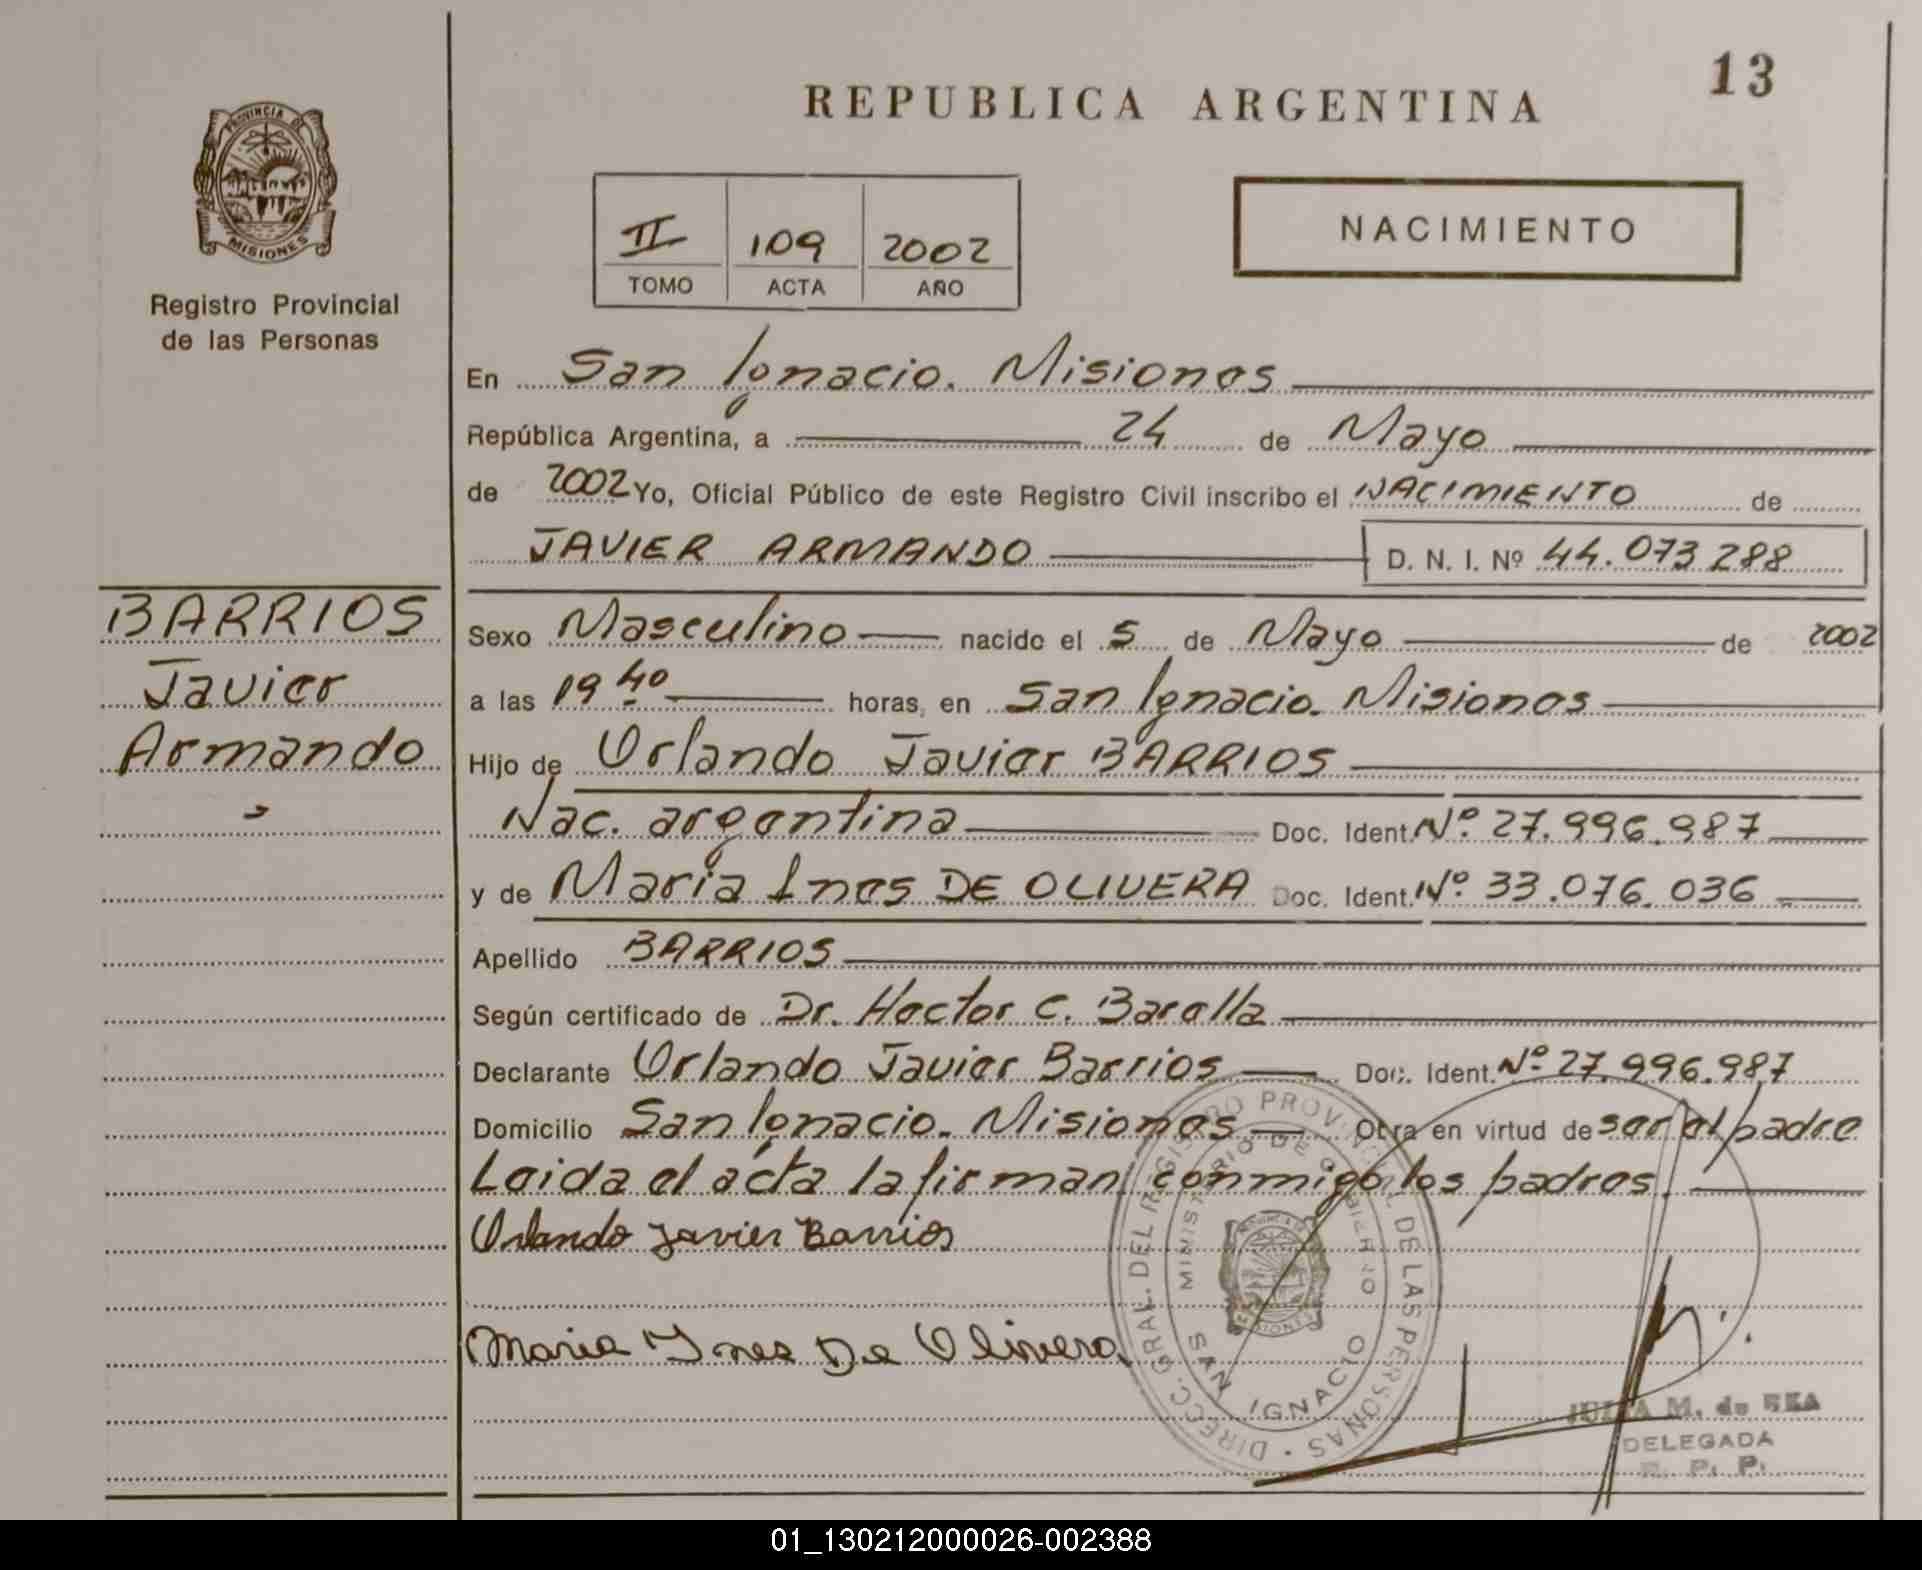 13
REPUBLICA ARGENTINA
PROVINCIA DE
MISIONES
Registro Provincial
de las Personas
NACIMIENTO
II 109 2002
TOMO ACTA AÑO
En San Ignacio. Misiones
República Argentina, a 24 de Mayo
de 2002 Yo, Oficial Público de este Registro Civil inscribo el NACIMIENTO de
JAVIER ARMANDO D. N. I. Nº 44.073.288
BARRIOS
Javier
Armando
Sexo Masculino nacido el 5 de Mayo de 2002
a las 19 40 horas, en San Ignacio. Misiones
Hijo de Orlando Javier BARRIOS
Nac. argentina Doc. Ident. Nº. 27.996.987
y de Maria Ines DE OLIVERA Doc. Ident. Nº. 33.076.036
Apellido BARRIOS
Según certificado de Dr. Hector C. Barella
Declarante Orlando Javier Barrios Doc. Ident. Nº. 27.996.987
Domicilio San Ignacio. Misiones Obra en virtud de ser el padre
Leida el acta la firman conmigo los padres.
Orlando Javier Barrios
Maria Ines De Olivera
DIRECC. GRAL. DEL REGISTRO PROVINCIAL DE LAS PERSONAS
MINISTERIO DE GOBIERNO
PROVINCIA DE
MISIONES
SAN IGNACIO
JULIA M. de
DELEGADA
R. P. P.
01_130212000026-002388